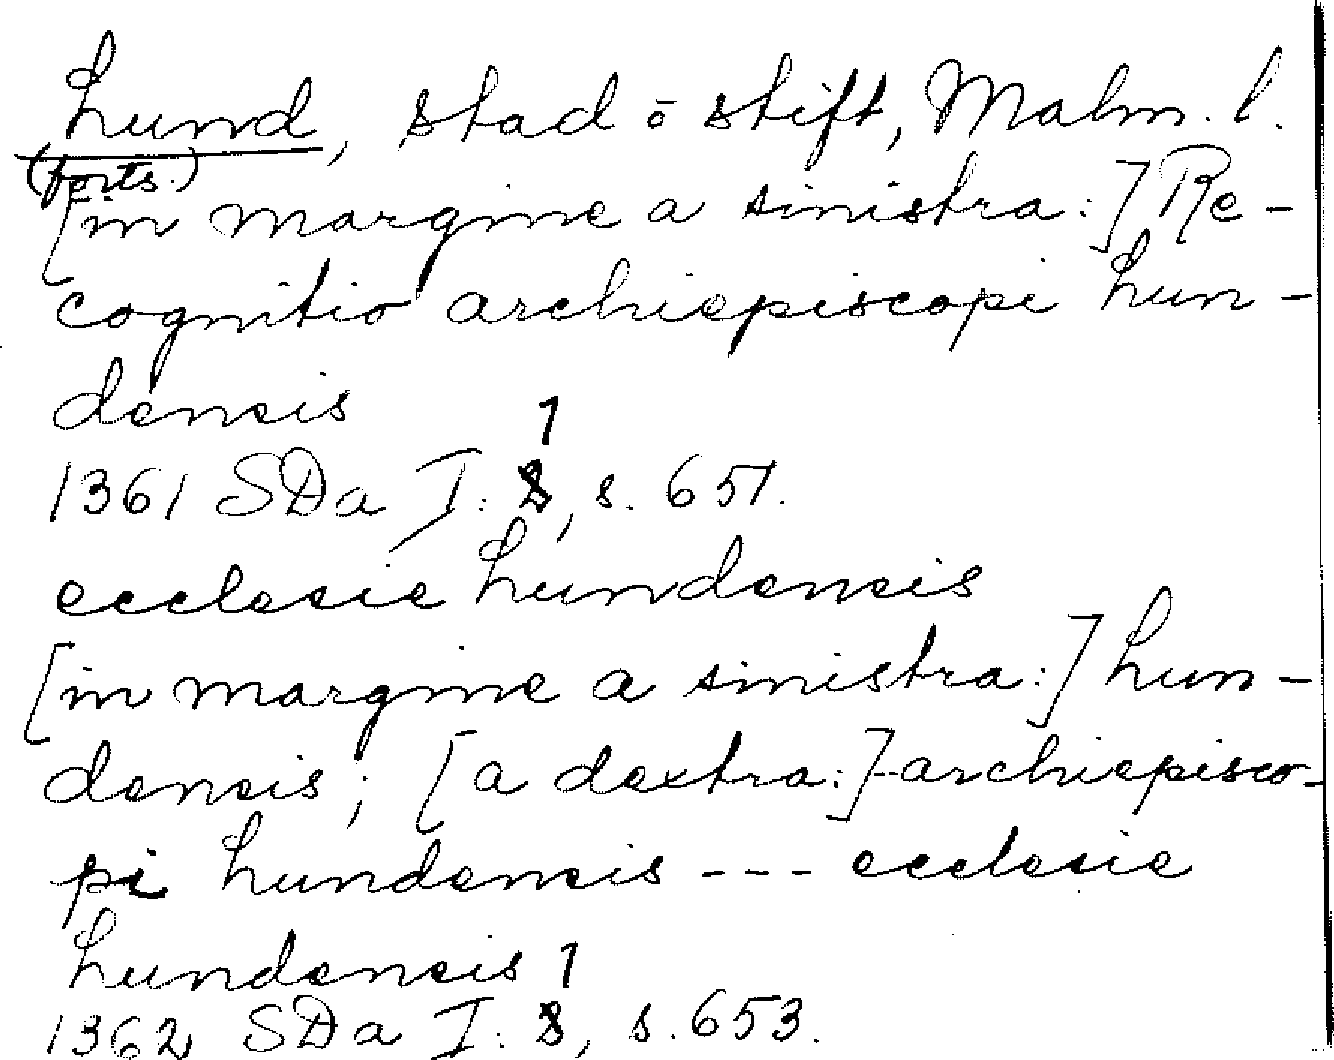 Lund, stad o stift, Malm. l.
(forts.)
[in margine a sinistra:] Re-
cognitio archiepiscopi Lun-
densis
1
1361 SDa I: 8, s. 651.
ecclesie Lundensis
[in margine a sinistra:] Lun-
densis; [a dextra:] archiepisco-
pi Lundensis --- ecclesie
Lundensis 1
1362 SDa I: 8, s. 653.